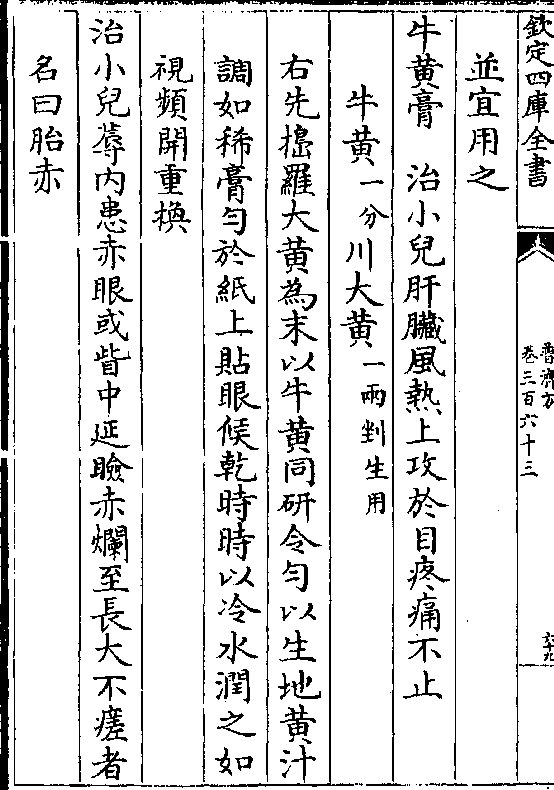 欽定四庫全書
普濟方
卷三百六十三
六十九
並宜用之
牛黄膏　治小兒肝臟風熱上攻於目疼痛不止
牛黄一分川大黄一兩剉生用
右先搗羅大黄為末以牛黄同研令勻以生地黄汁
調如稀膏勻於紙上貼眼候乾時時以冷水潤之如
視頻開重換
治小兒蓐内患赤眼或眥中延瞼赤爛至長大不瘥者
名曰胎赤